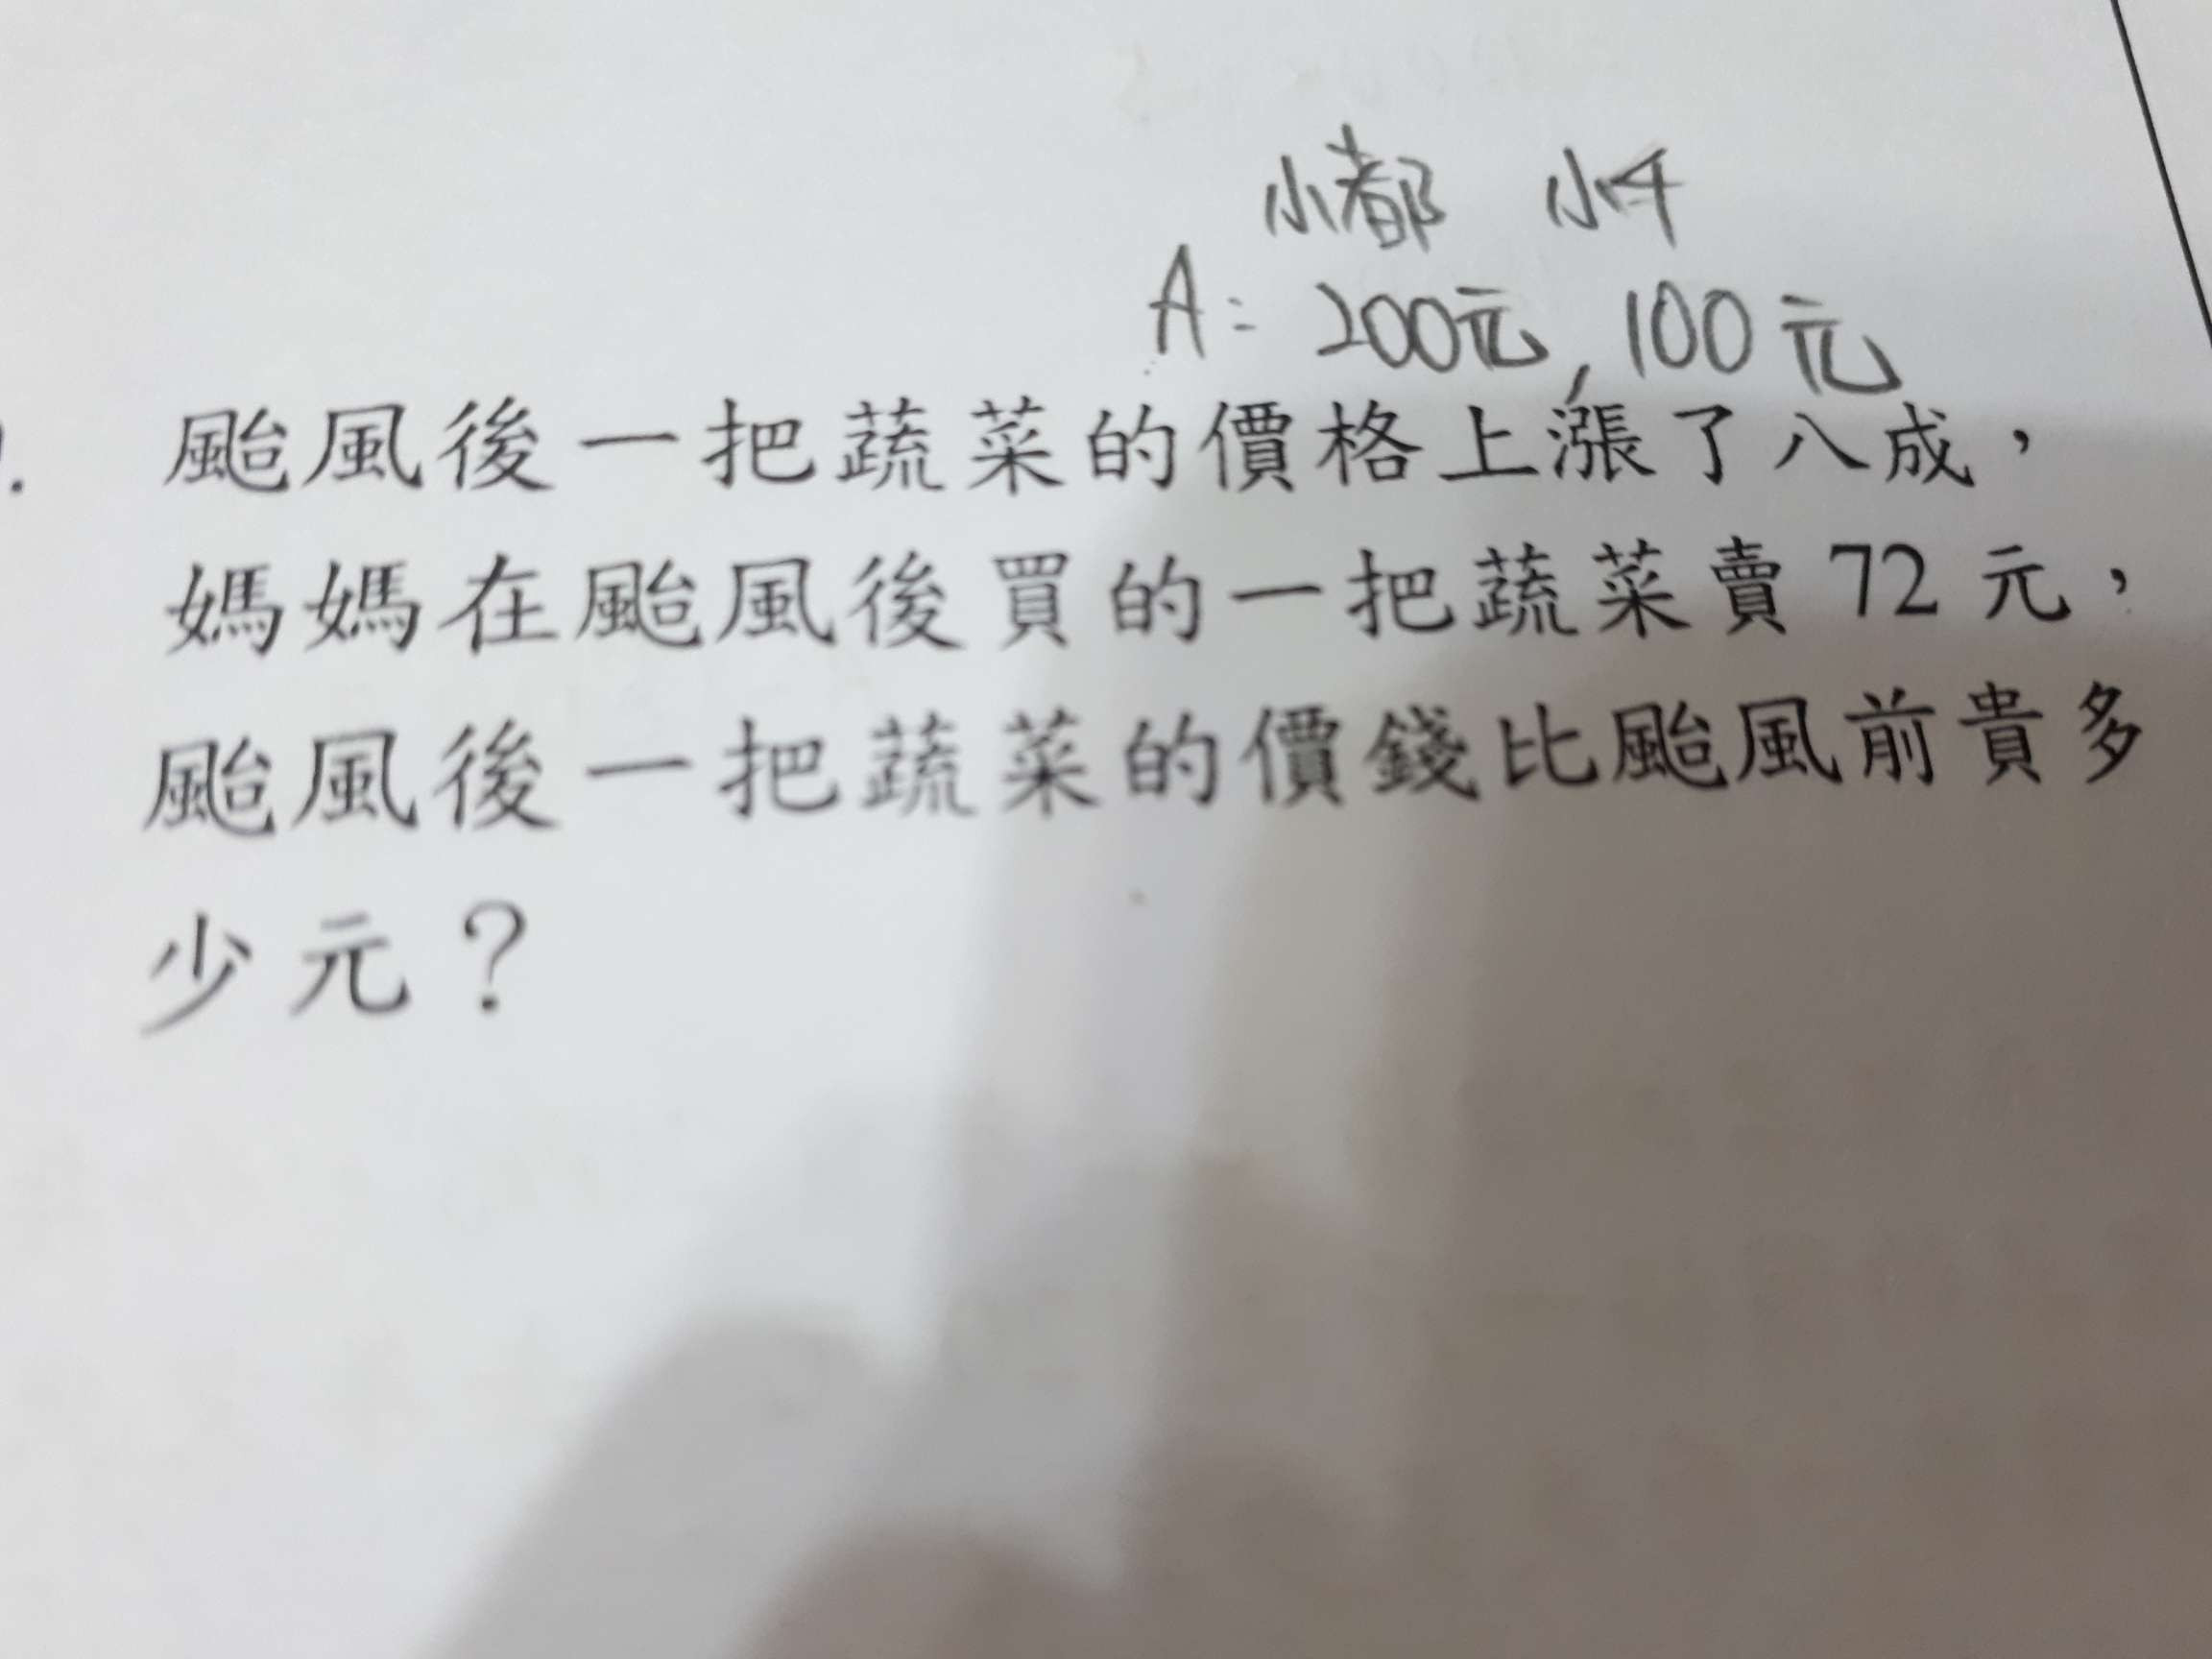 小都 小千
A= 200元,100元
颱風後一把蔬菜的價格上漲了八成，
媽媽在颱風後買的一把蔬菜賣 72 元，
颱風後一把蔬菜的價錢比颱風前貴多
少元？